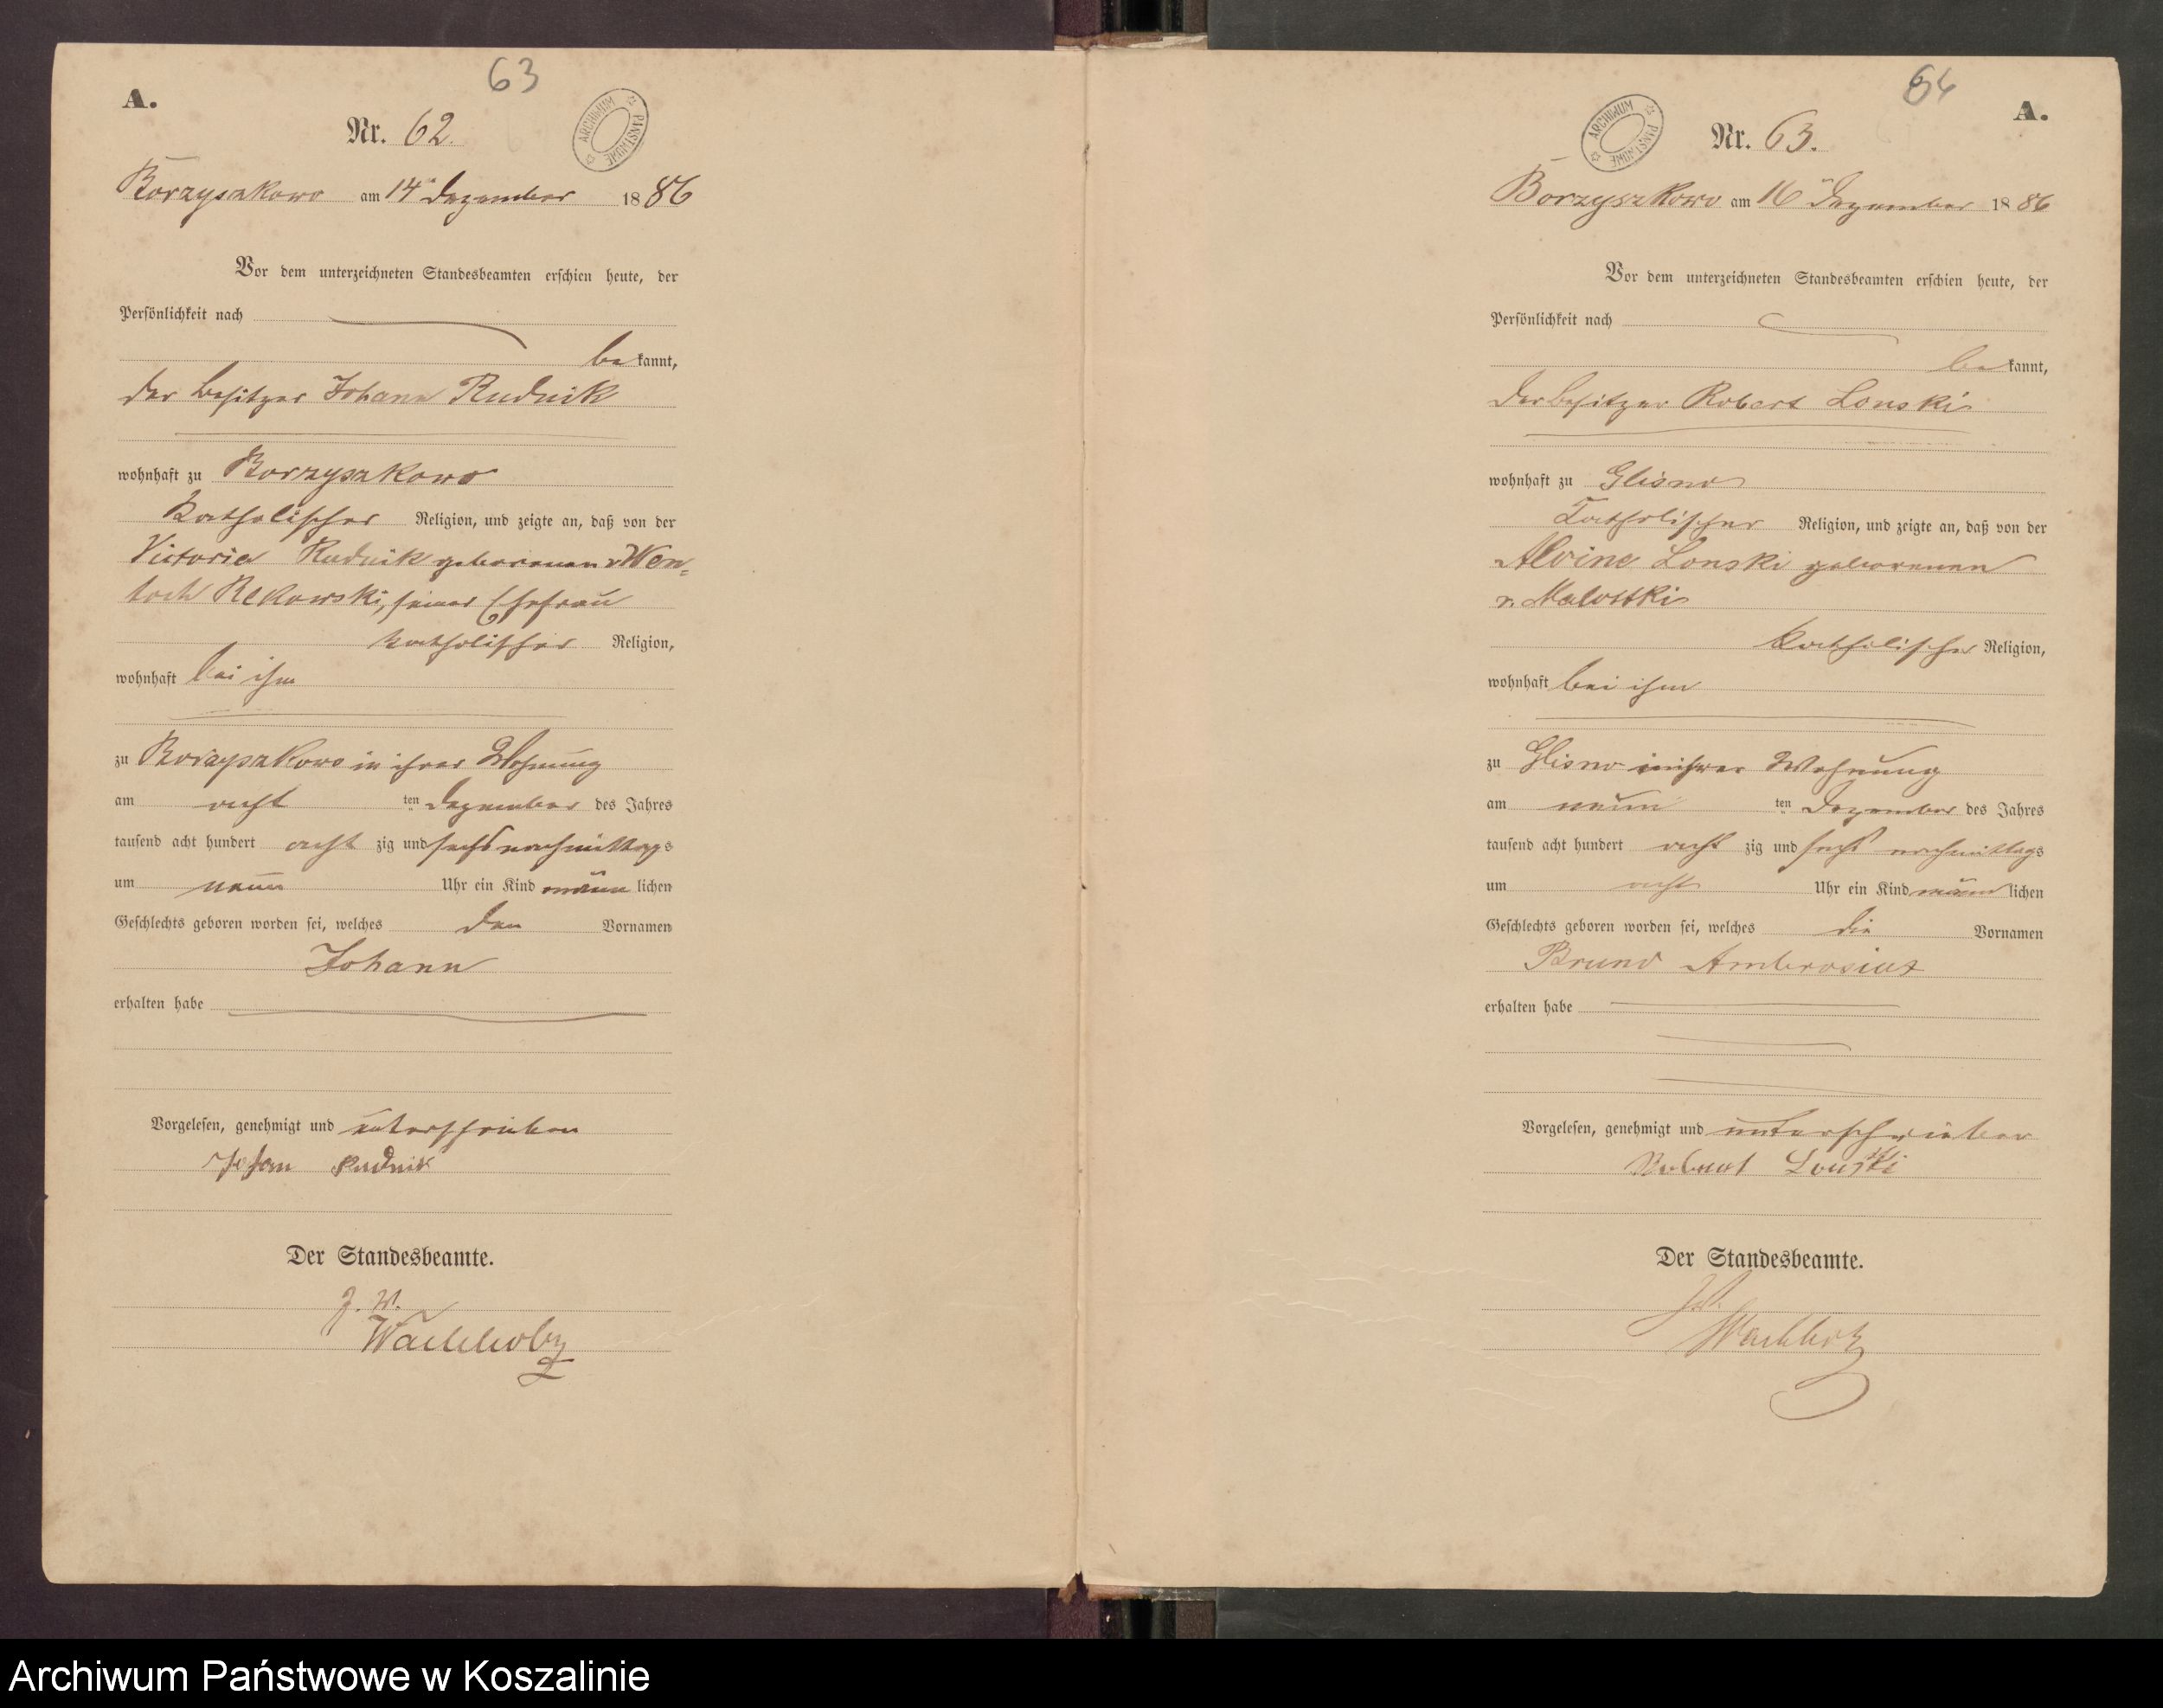 63
A.
Nr. 62.
ARCHIWUM PAŃSTWOWE
Borzyszkowo am 14 Dezember 1886
Vor dem unterzeichneten Standesbeamten erschien heute, der
Persönlichkeit nach
bekannt,
der Besitzer Johann Rudnik
wohnhaft zu Borzyszkowo
katholischer Religion, und zeigte an, daß von der
Victoria Rudnik geborenen v Wen=
toch Rekowski, seiner Ehefrau
katholischer Religion,
wohnhaft bei ihm
zu Borzyszkowo in ihrer Wohnung
am acht ten Dezember des Jahres
tausend acht hundert acht zig und sechs nachmittags
um neun Uhr ein Kind männlichen
Geschlechts geboren worden sei, welches den Vornamen
Johann
erhalten habe
Vorgelesen, genehmigt und unterschrieben
Johan Rudnik
Der Standesbeamte.
Wachholz
64
A.
Nr. 63.
ARCHIWUM PAŃSTWOWE
Borzyszkowo am 16 Dezember 1886
Vor dem unterzeichneten Standesbeamten erschien heute, der
Persönlichkeit nach
bekannt,
der Besitzer Robert Lonski
wohnhaft zu Glisno
katholischer Religion, und zeigte an, daß von der
Alvine Lonski geborenen
v. Malottki
katholischer Religion,
wohnhaft bei ihm
zu Glisno in ihrer Wohnung
am neun ten Dezember des Jahres
tausend acht hundert acht zig und sechs nachmittags
um acht Uhr ein Kind männlichen
Geschlechts geboren worden sei, welches die Vornamen
Bruno Ambrosius
erhalten habe
Vorgelesen, genehmigt und unterschrieben
Robert Lonski
Der Standesbeamte.
Wachholz
Archiwum Państwowe w Koszalinie